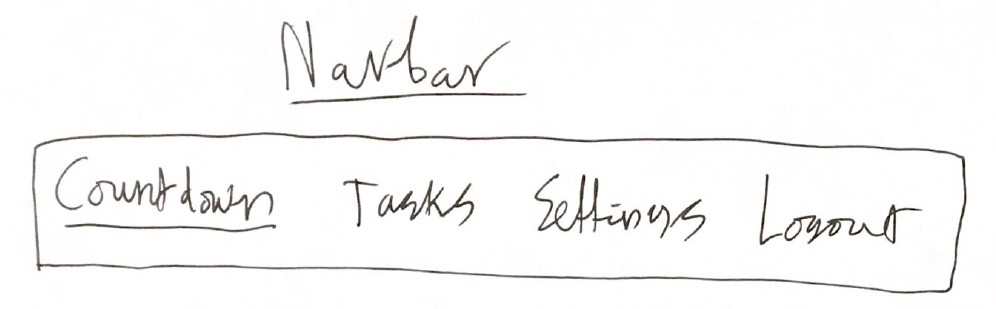 Navbar
Countdown Tasks Settings Logout